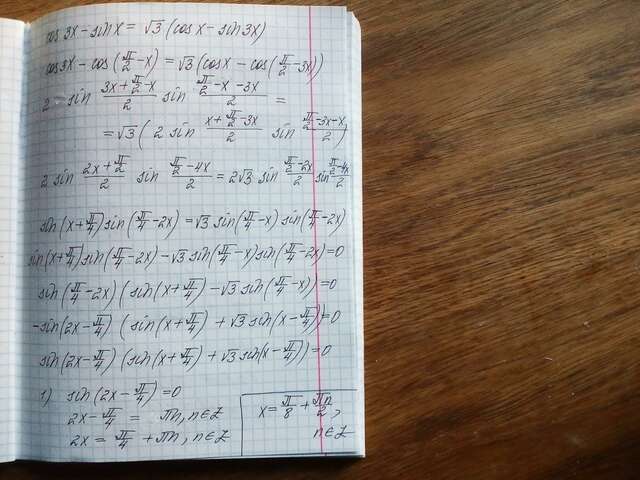 cos 3x - sin x = √3 (cos x - sin 3x)
cos 3x - cos(π/2 - x) = √3 (cos x - cos(π/2 - 3x))
2 sin (3x + π/2 - x)/2 sin (π/2 - x - 3x)/2 =
= √3 (2 sin (x + π/2 - 3x)/2 sin (π/2 - 3x - x)/2)
2 sin (2x + π/2)/2 sin (π/2 - 4x)/2 = 2√3 sin (π/2 - 2x)/2 sin (π/2 - 4x)/2
sin(x + π/4) sin(π/4 - 2x) = √3 sin(π/4 - x) sin(π/4 - 2x)
sin(x + π/4) sin(π/4 - 2x) - √3 sin(π/4 - x) sin(π/4 - 2x) = 0
sin(π/4 - 2x) (sin(x + π/4) - √3 sin(π/4 - x)) = 0
-sin(2x - π/4) (sin(x + π/4) + √3 sin(x - π/4)) = 0
sin(2x - π/4) (sin(x + π/4) + √3 sin(x - π/4)) = 0
1) sin(2x - π/4) = 0
2x - π/4 = πn, n ∈ Z
2x = π/4 + πn, n ∈ Z
x = π/8 + πn/2,
n ∈ Z